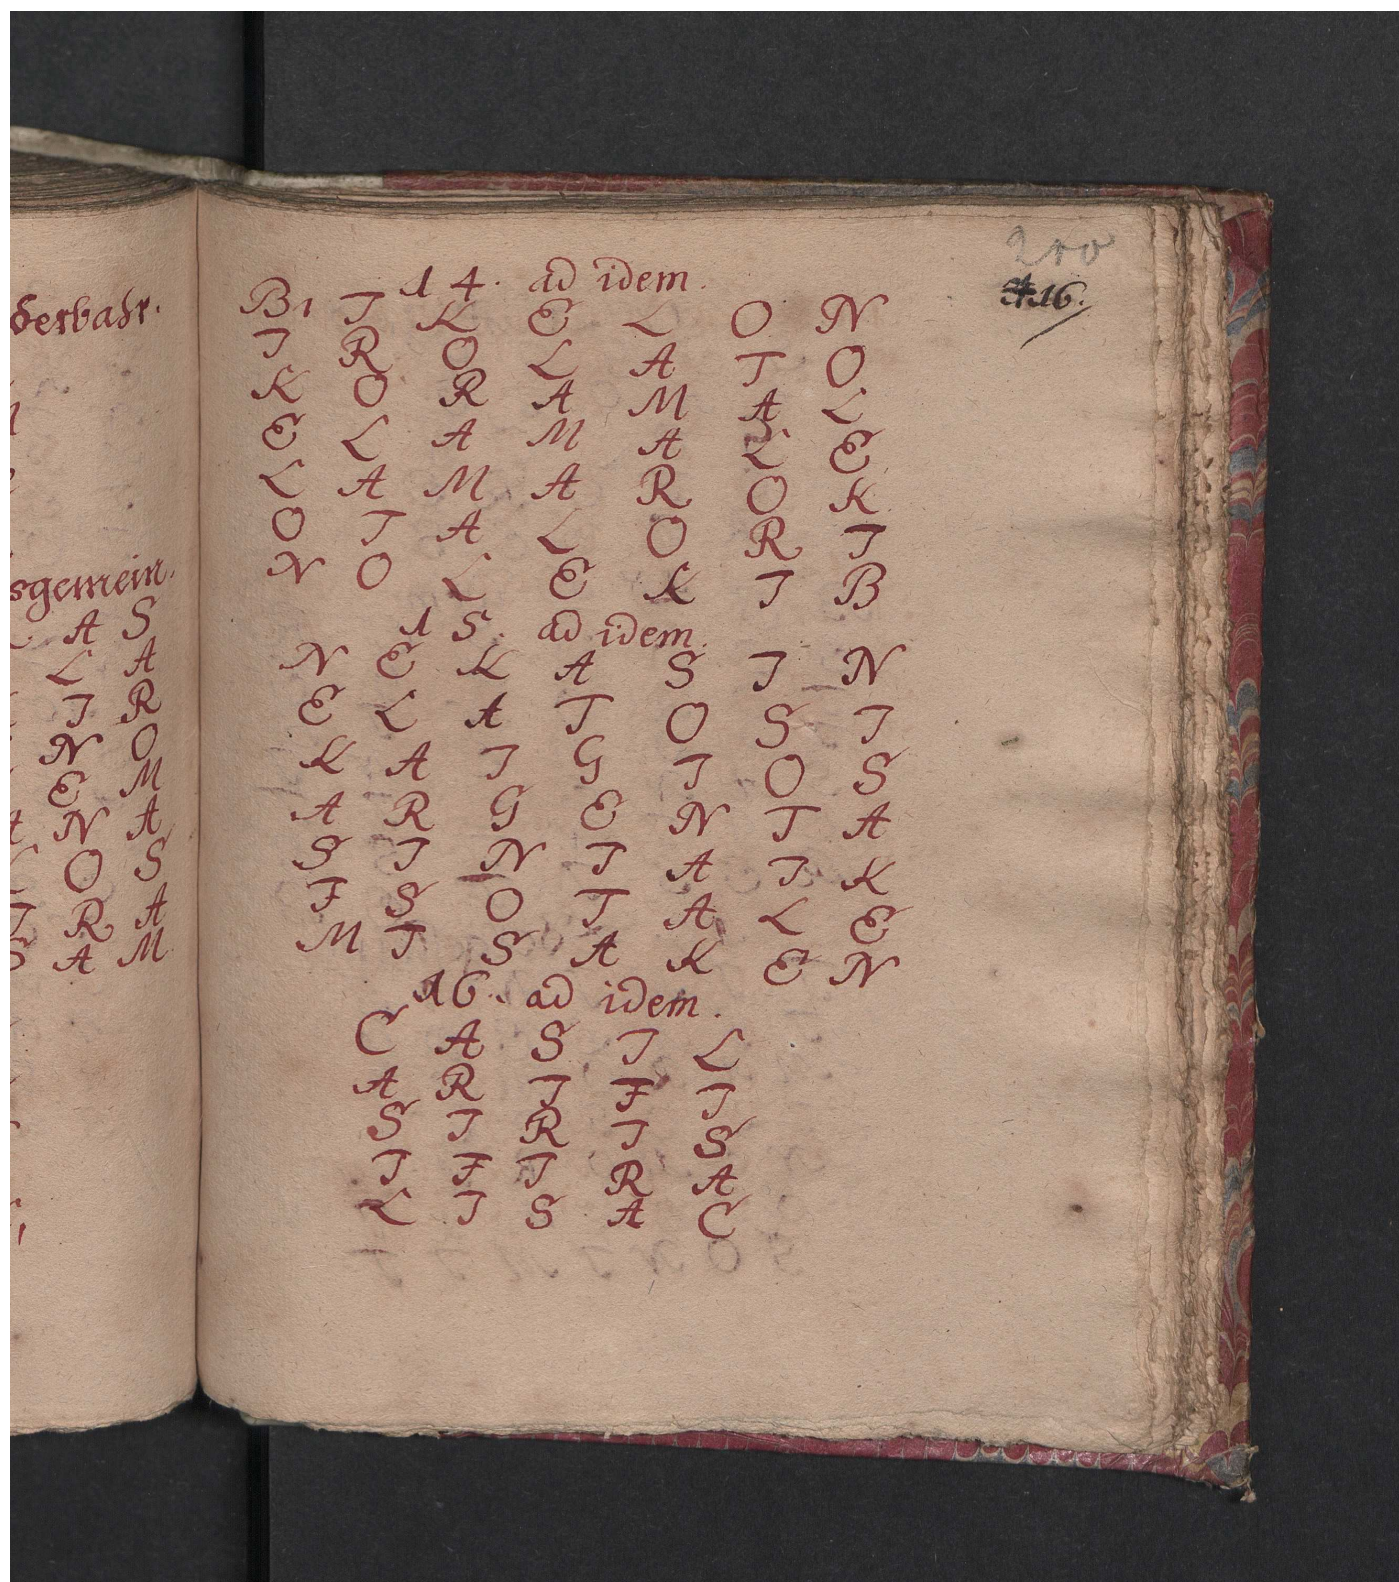 derbahr.
sgemein.
A S
L A
I R
N O
E M
A N A
O S
I R A
S A M
200
416.
14. ad idem.
B1 I K E L O N
I R O L A T O
K O R A M A L
E L A M A L E
L A M A R O K
O T A L O R I
N O L E K I B
15. ad idem.
N E K A S I N
E L A T O S I
K A I G I O S
A R G E N T A
S I N I A I K
F S O T A L E
M I S A K E N
16. ad idem.
C A S I L
A R I F I
S I R I S
I F I R A
L I S A C